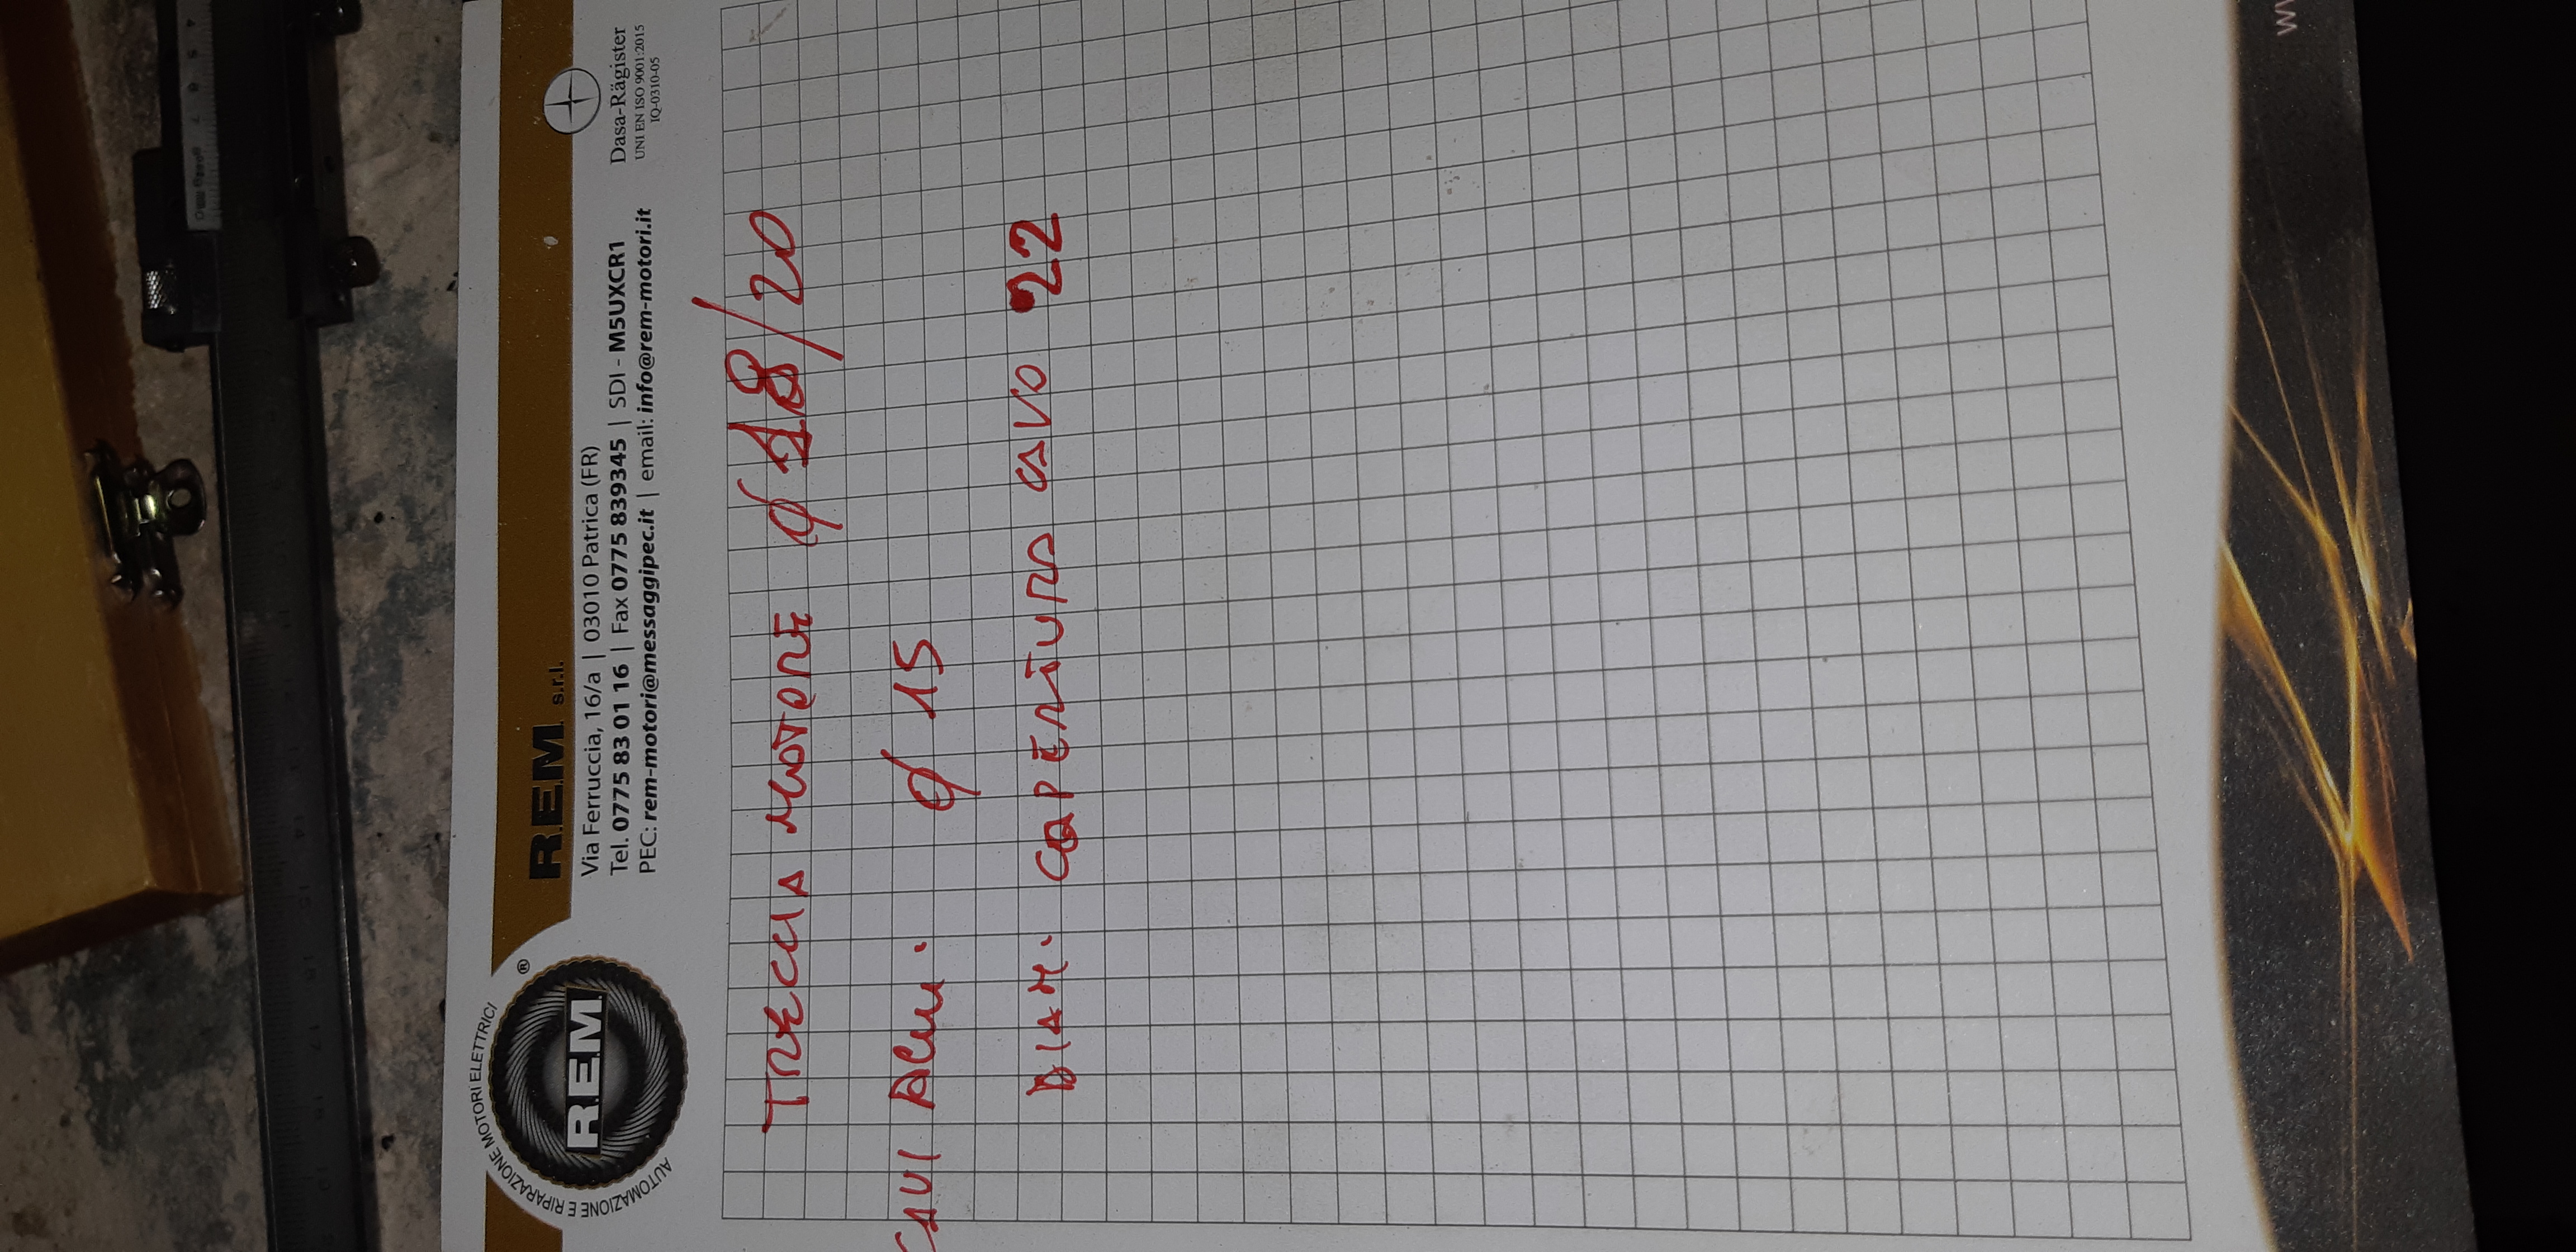 AUTOMAZIONE E RIPARAZIONE MOTORI ELETTRICI
R.E.M. ®
R.E.M. s.r.l.
Via Ferruccia, 16/a | 03010 Patrica (FR)
Tel. 0775 83 01 16 | Fax 0775 839345 | SDI - M5UXCR1
PEC: rem-motori@messaggipec.it | email: info@rem-motori.it
Dasa-Rägister
UNI EN ISO 9001:2015
IQ-0310-05
TRECCIA MOTORE Ø 18/20
CAVI ALIM. Ø 15
DIAM. COPERTURA CAVO 22